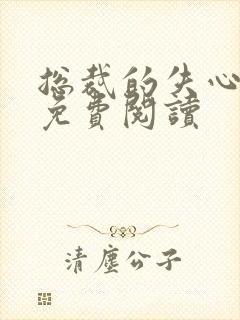 总裁的失心
免費閱讀
清塵公子